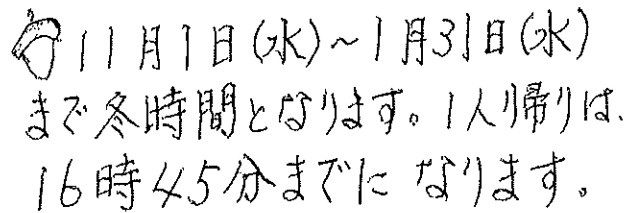 11月1日(水)～1月31日(水)
まで冬時間となります。1人帰りは、
16時45分までになります。